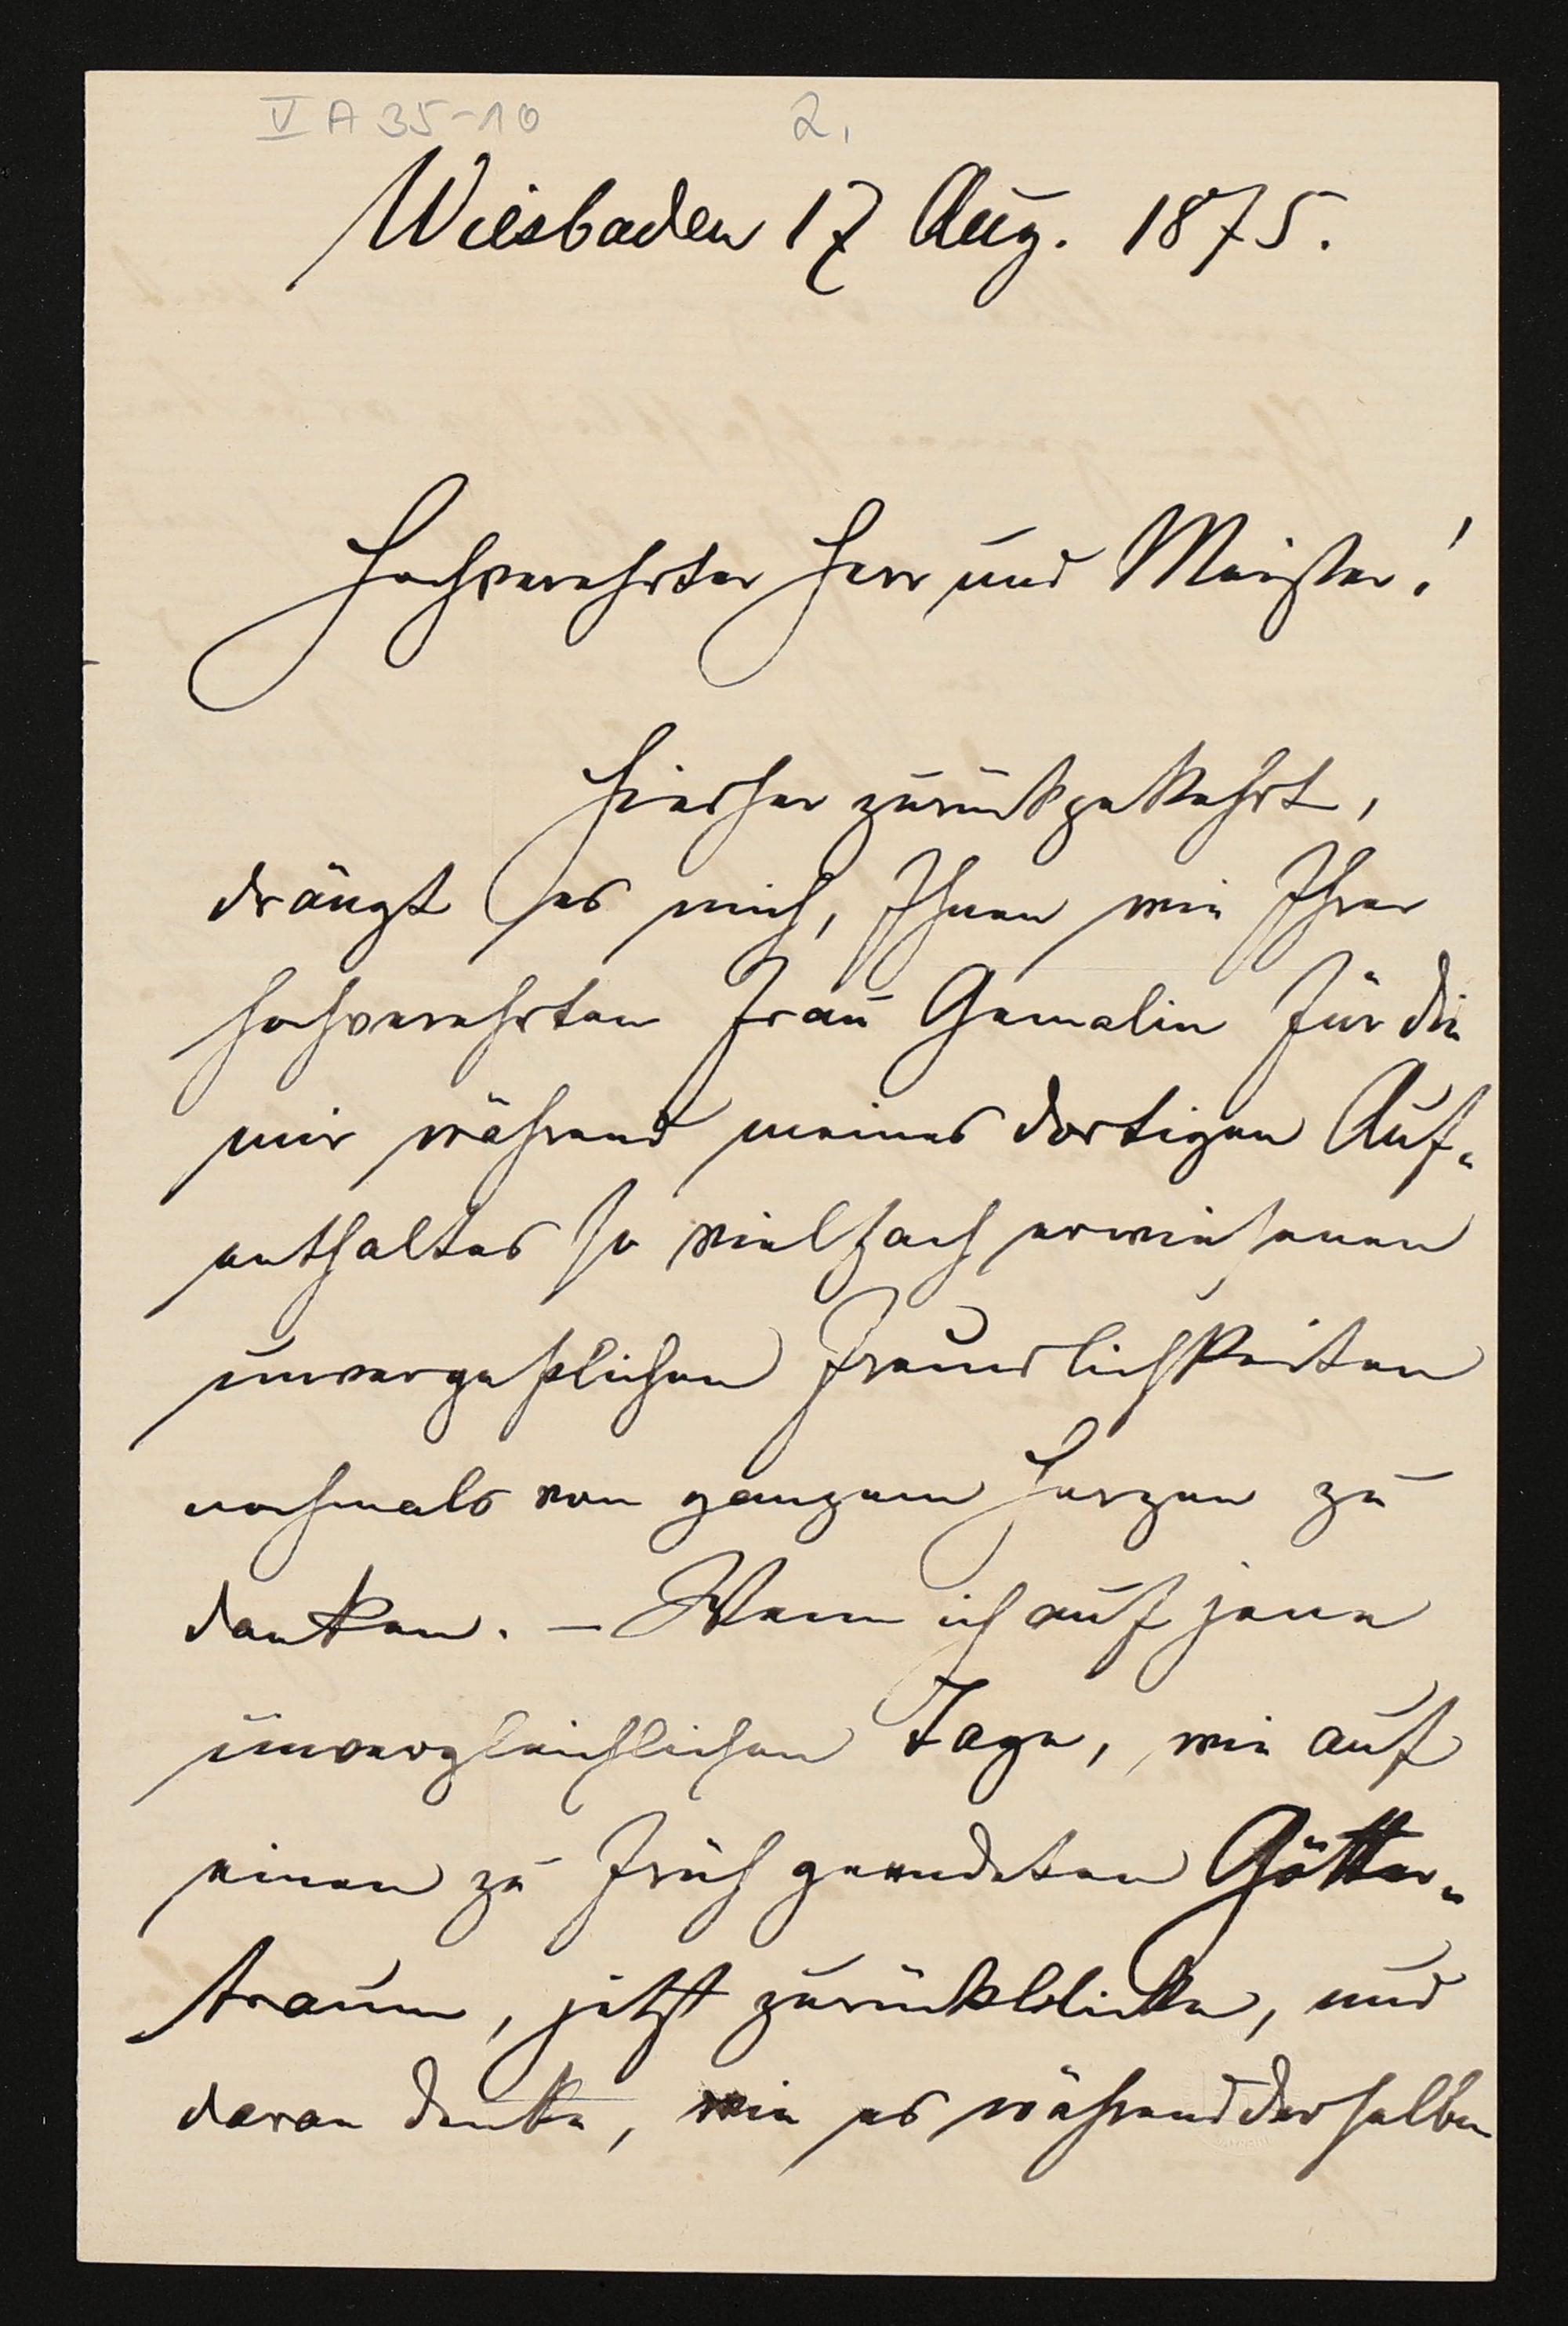 V A 35-10 2.
Wiesbaden 17 Aug. 1875.
Hochverehrter Herr und Meister!
Hierher zurückgekehrt,
drängt es mich, Ihnen wie Ihrer
hochverehrten Frau Gemalin für die
mir während meines dortigen Auf-
enthaltes so vielfach erwiesenen
unvergeßlichen Freundlichkeiten
nochmals von ganzem Herzen zu
danken. – Wenn ich auf jene
unvergleichlichen Tage, wie auf
einen zu früh geendeten Götter-
traum, jetzt zurückblicke, und
daran denke, wie es während derselben